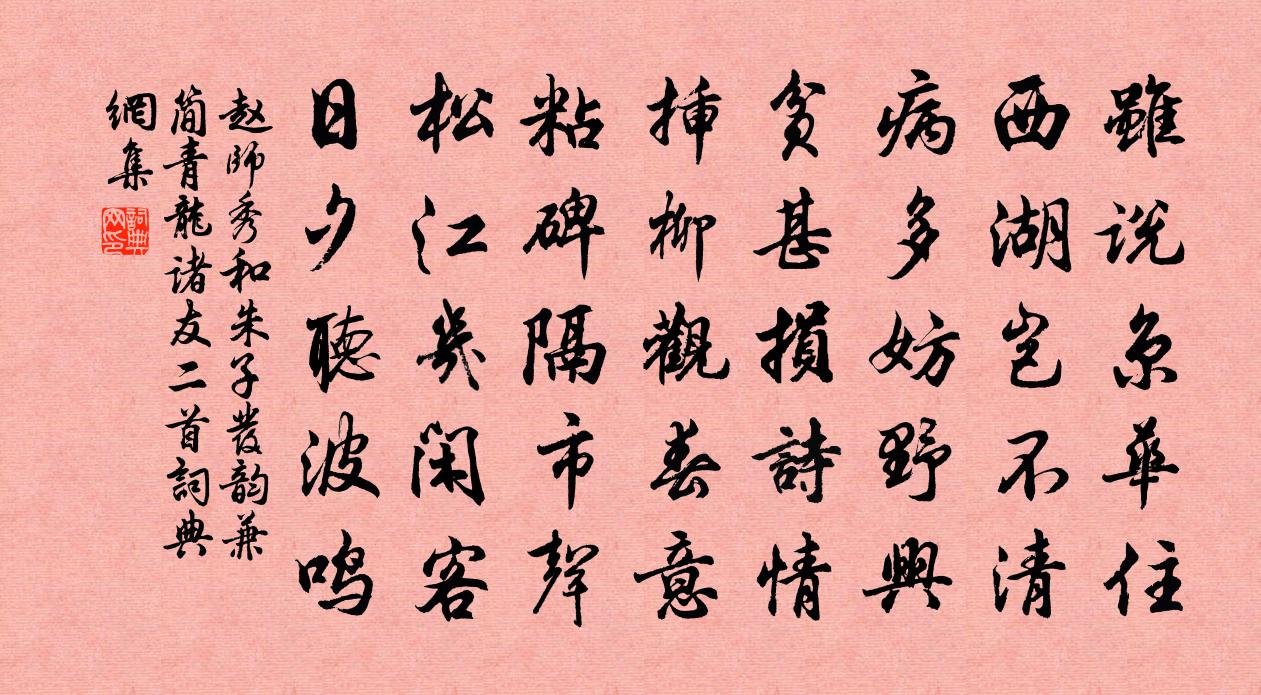 雖説京華住
西湖豈不清
病多妨野興
貧甚損詩情
挿柳觀春意
粘碑隔市聲
松江幾閑客
日夕聽波鸣
赵師秀和朱子發韵兼
简青龍诸友二首詞典
網集
詞典
网印